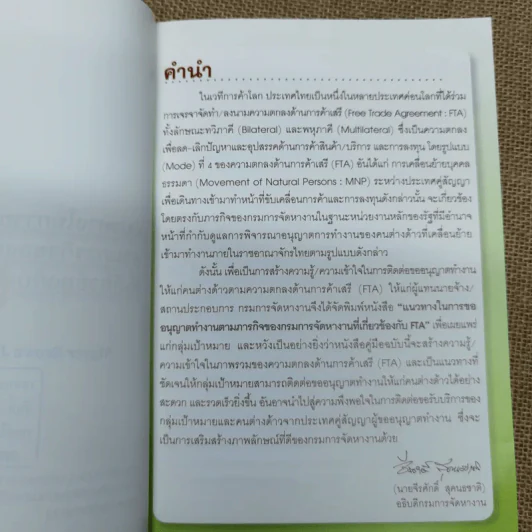 คำนำ
ในเวทีการค้าโลก ประเทศไทยเป็นหนึ่งในหลายประเทศค่อนโลกที่ได้ร่วม
การเจรจาจัดทำ/ลงนามความตกลงด้านการค้าเสรี (Free Trade Agreement : FTA)
ทั้งลักษณะทวิภาคี (Bilateral) และพหุภาคี (Multilateral) ซึ่งเป็นความตกลง
เพื่อลด-เลิกปัญหาและอุปสรรคด้านการค้าสินค้า/บริการ และการลงทุน โดยรูปแบบ
(Mode) ที่ 4 ของความตกลงด้านการค้าเสรี (FTA) อันได้แก่ การเคลื่อนย้ายบุคคล
ธรรมดา (Movement of Natural Persons : MNP) ระหว่างประเทศคู่สัญญา
เพื่อเดินทางเข้ามาทำหน้าที่ขับเคลื่อนการค้าและการลงทุนดังกล่าวนั้น จะเกี่ยวข้อง
โดยตรงกับภารกิจของกรมการจัดหางานในฐานะหน่วยงานหลักของรัฐที่มีอำนาจ
หน้าที่กำกับดูแลการพิจารณาอนุญาตการทำงานของคนต่างด้าวที่เคลื่อนย้าย
เข้ามาทำงานภายในราชอาณาจักรไทยตามรูปแบบดังกล่าว
ดังนั้น เพื่อเป็นการสร้างความรู้/ความเข้าใจในการติดต่อขออนุญาตทำงาน
ให้แก่คนต่างด้าวตามความตกลงด้านการค้าเสรี (FTA) ให้แก่ผู้แทนนายจ้าง/
สถานประกอบการ กรมการจัดหางานจึงได้จัดพิมพ์หนังสือ "แนวทางในการขอ
อนุญาตทำงานตามภารกิจของกรมการจัดหางานที่เกี่ยวข้องกับ FTA" เพื่อเผยแพร่
แก่กลุ่มเป้าหมาย และหวังเป็นอย่างยิ่งว่าหนังสือคู่มือฉบับนี้จะสร้างความรู้/
ความเข้าใจในภาพรวมของความตกลงด้านการค้าเสรี (FTA) และเป็นแนวทางที่
ชัดเจนให้กลุ่มเป้าหมายสามารถติดต่อขออนุญาตทำงานให้แก่คนต่างด้าวได้อย่าง
สะดวก และรวดเร็วยิ่งขึ้น อันอาจนำไปสู่ความพึงพอใจในการติดต่อขอรับบริการของ
กลุ่มเป้าหมายและคนต่างด้าวจากประเทศคู่สัญญาผู้ขออนุญาตทำงาน ซึ่งจะ
เป็นการเสริมสร้างภาพลักษณ์ที่ดีของกรมการจัดหางานด้วย
(นายจีรศักดิ์ สุคนธชาติ)
อธิบดีกรมการจัดหางาน